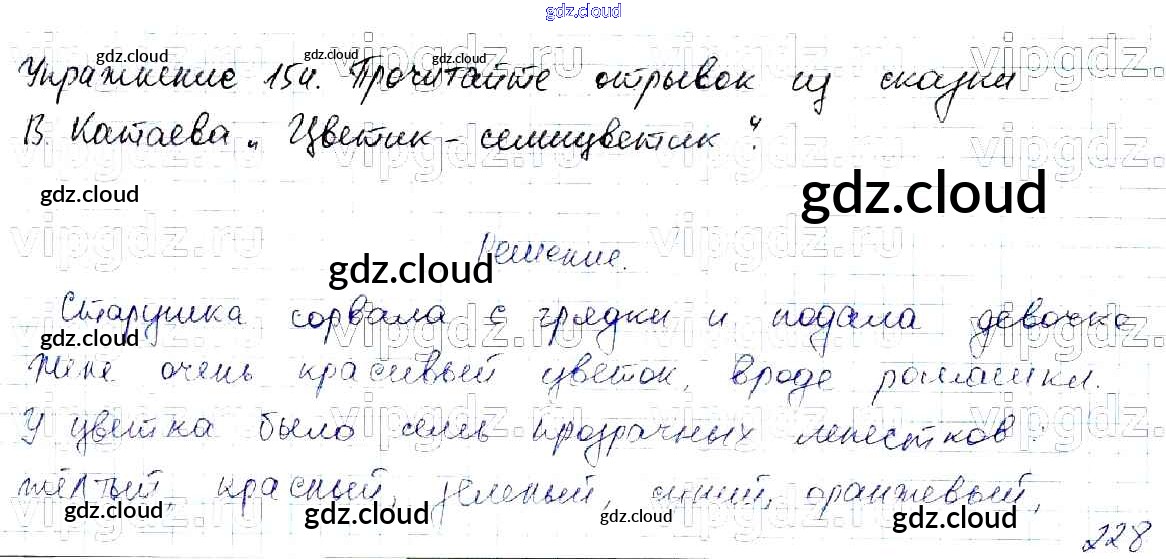 gdz.cloud
Упражнение 154. Прочитайте отрывок из сказки
В. Катаева „Цветик-семицветик“.
Решение.
Старушка сорвала с грядки и подала девочке
Жене очень красивый цветок, вроде ромашки.
У цветка было семь прозрачных лепестков:
жёлтый, красный, зеленый, синий, оранжевый,
228
gdz.cloud
gdz.cloud
gdz.cloud
gdz.cloud
gdz.cloud
gdz.cloud
gdz.cloud
gdz.cloud
gdz.cloud
gdz.cloud
gdz.cloud
gdz.cloud
gdz.cloud
vipgdz.ru
vipgdz.ru
vipgdz.ru